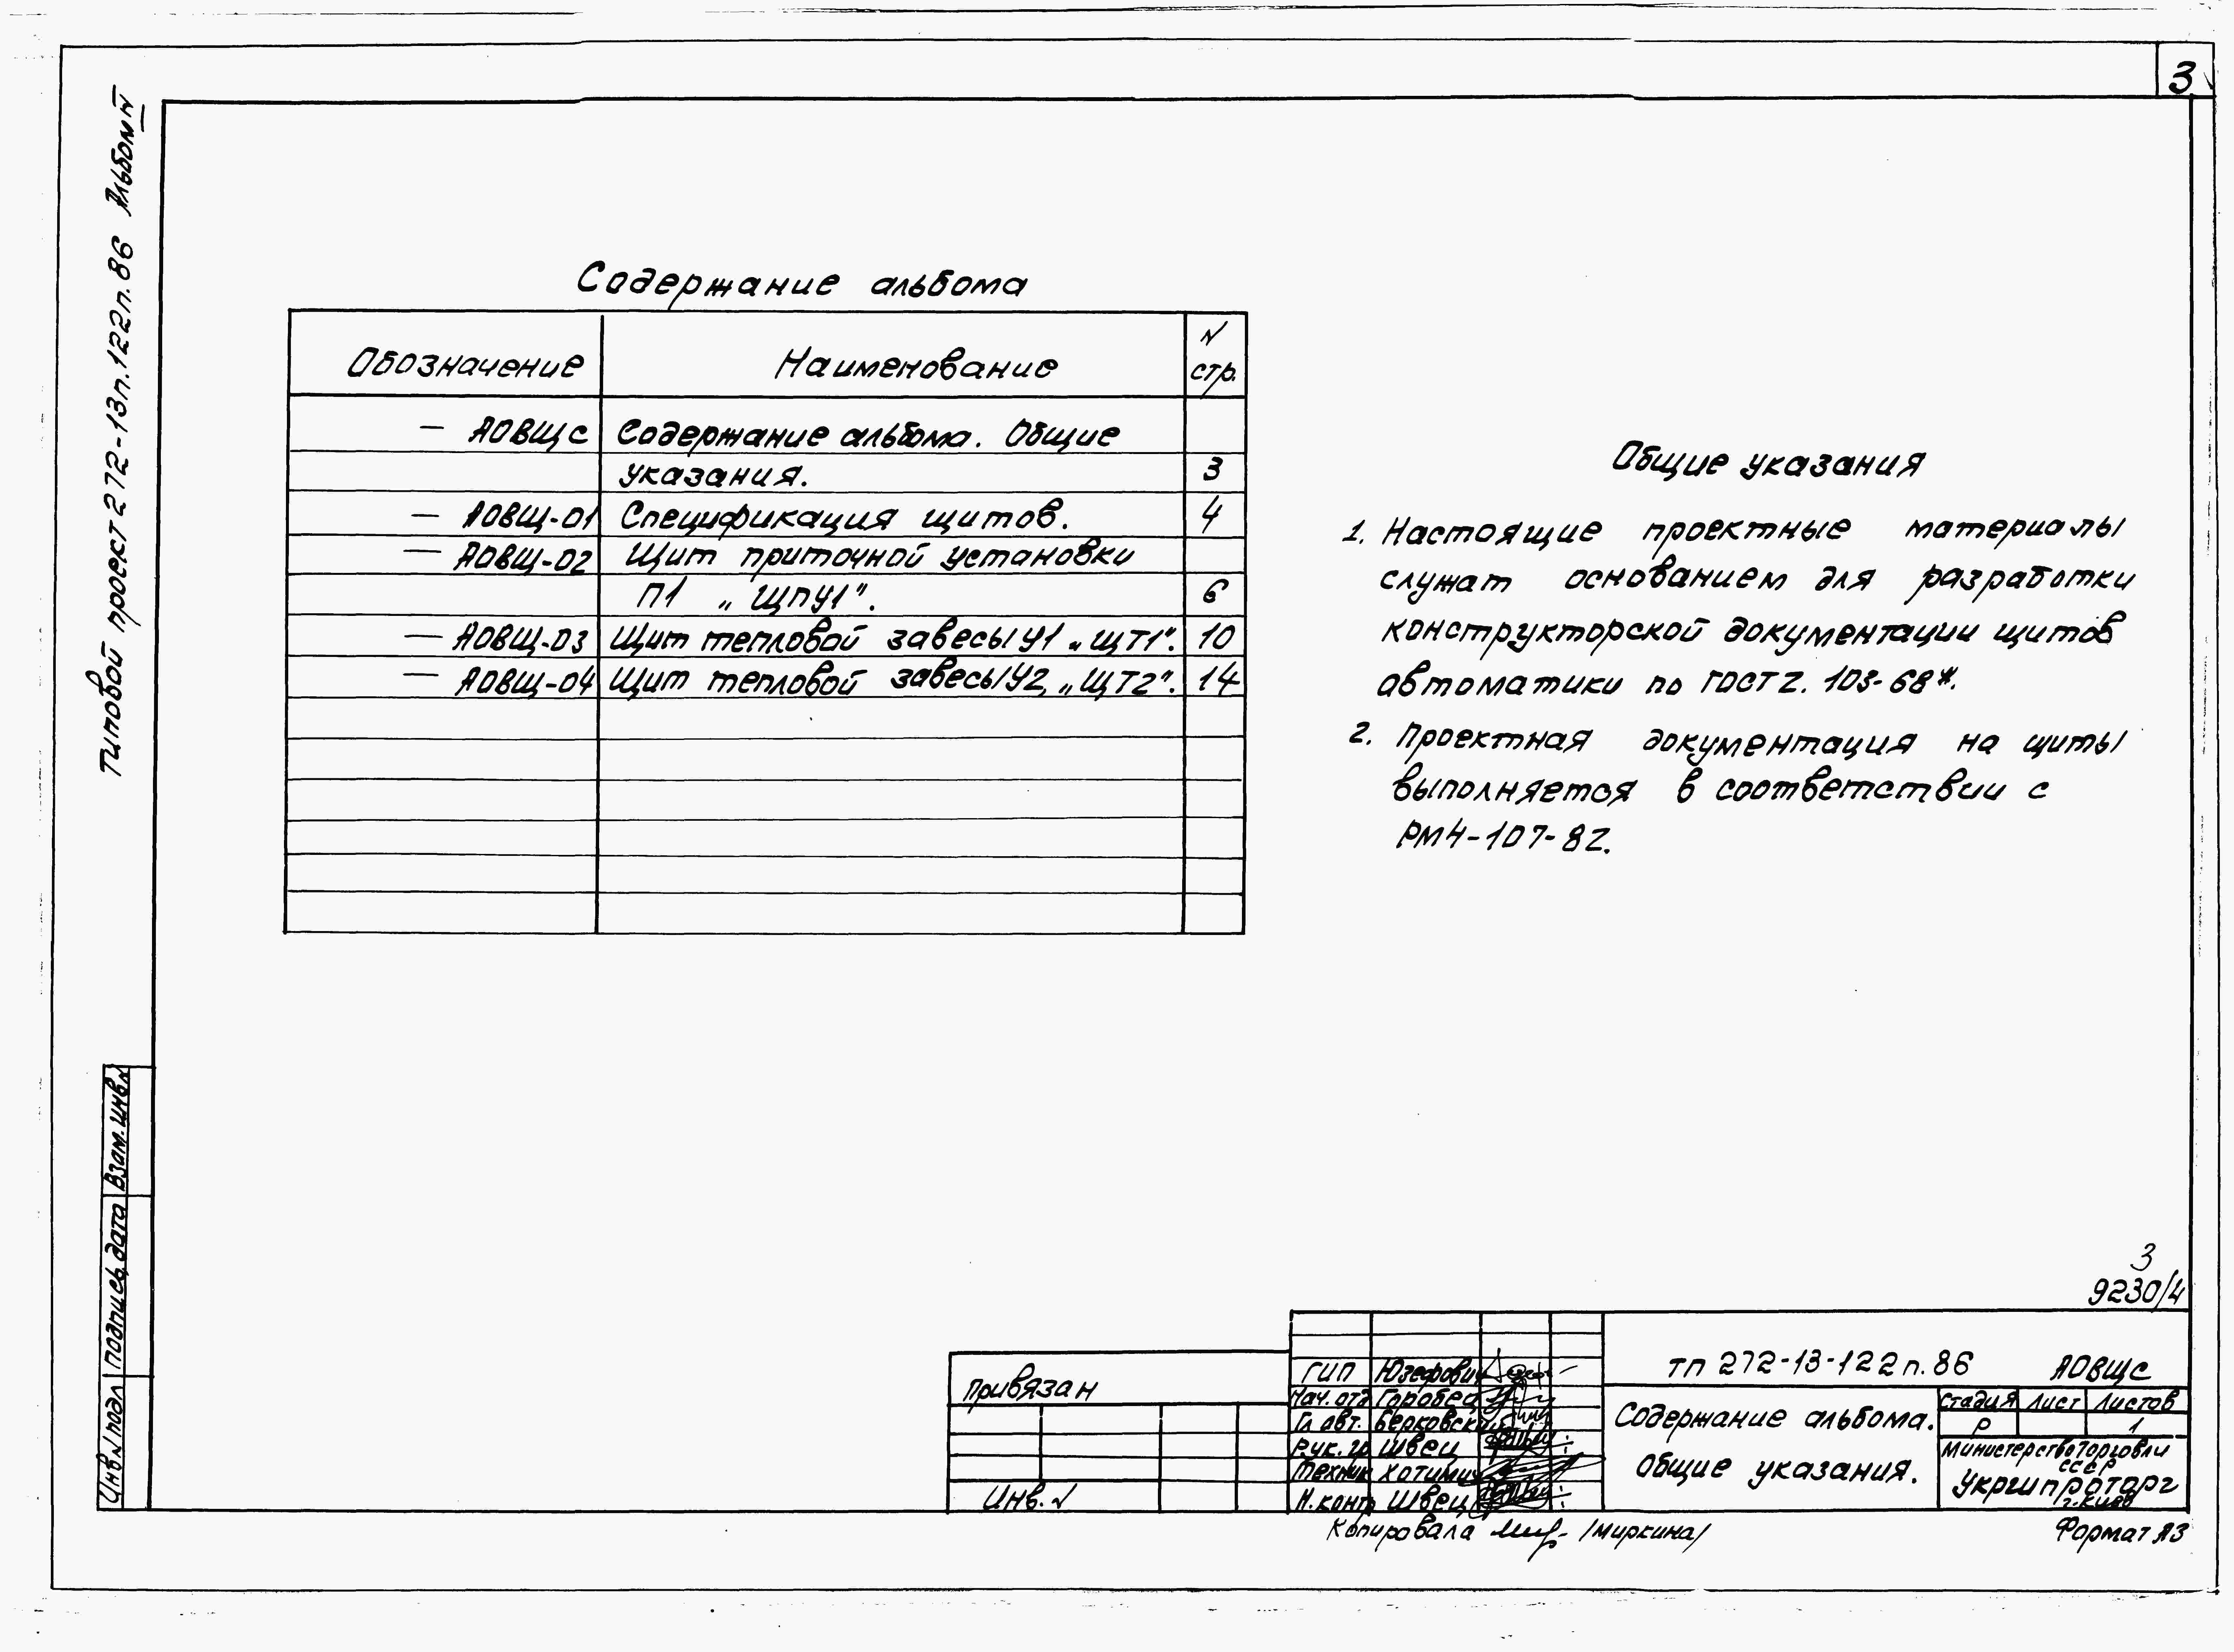 3
Типовой проект 272-13п.122п.86 Альбом
Содержание альбома
Обозначение Наименование N стр.
— АОВЩС Содержание альбома. Общие
указания. 3
— АОВЩ-01 Спецификация щитов. 4
— АОВЩ-02 Щит приточной установки
П1 „ЩПУ1". 6
— АОВЩ-03 Щит тепловой завесы У1 „ЩТ1". 10
— АОВЩ-04 Щит тепловой завесы У2 „ЩТ2". 14
Общие указания
1. Настоящие проектные материалы
служат основанием для разработки
конструкторской документации щитов
автоматики по ГОСТ 2.103-68*.
2. Проектная документация на щиты
выполняется в соответствии с
РМ4-107-82.
Инв.N подл Подпись дата Взам.инв.N
3
9230/4
Привязан
Инв. N
ГИП Юзефович
Нач.отд Горобец
Гл авт. Берковский
Рук. гр Швец
Техник Хотимич
Н.контр Швец
ТП 272-13-122п.86 АОВЩС
Содержание альбома.
Общие указания.
Стадия Лист Листов
Р 1
Министерство торговли
СССР
Укргипроторг
г.Киев
Копировала /Миркина/
Формат А3